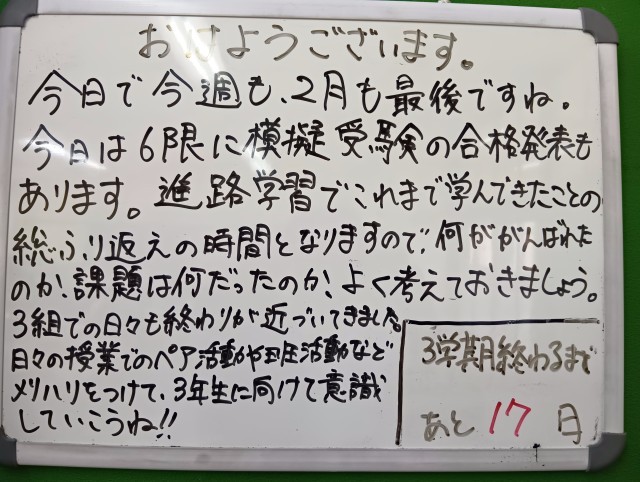 おはようございます。
今日で今週も、2月も最後ですね。
今日は6限に模擬受験の合格発表も
あります。進路学習でこれまで学んできたことの
総ふり返えの時間となりますので、何ががんばれた
のか、課題は何だったのか、よく考えておきましょう。
3組での日々も終わりが近づいてきました。
日々の授業でのペア活動や班活動など
メリハリをつけて、3年生に向けて意識
していこうね!!
3学期終わるまで
あと 17 日